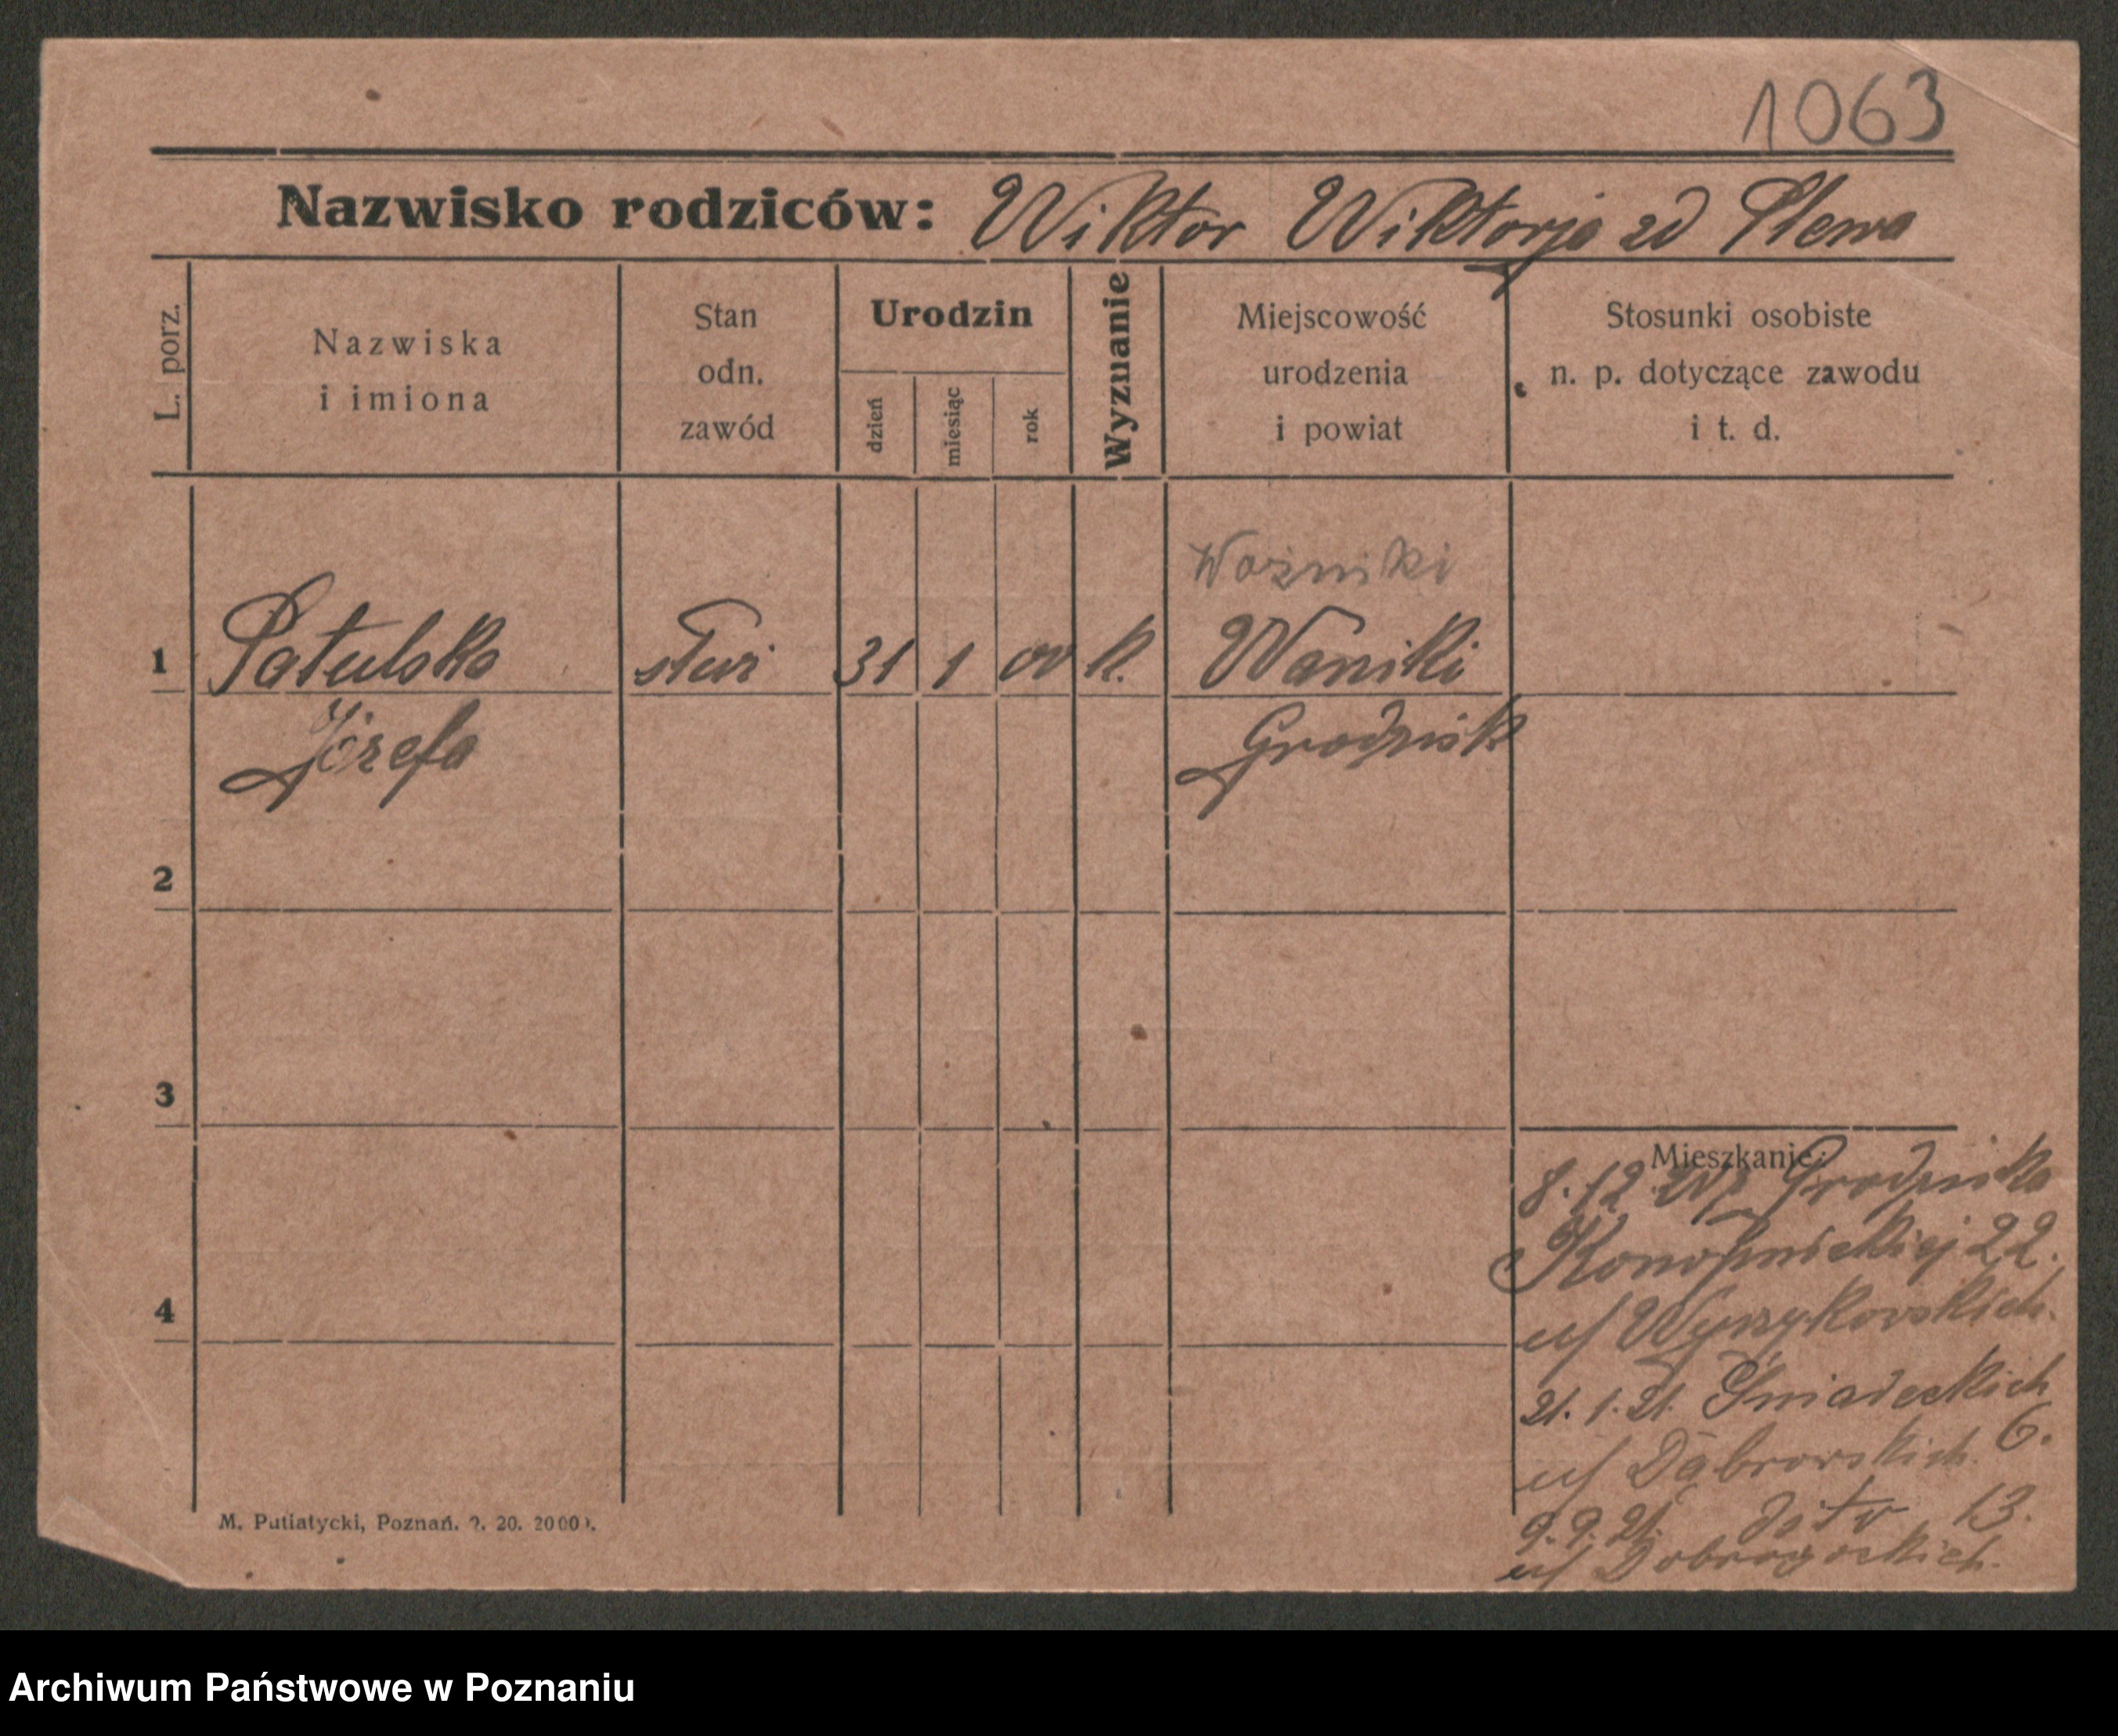 1063
Nazwisko rodziców: Wiktor Wiktorja zd Plewa
L. porz.
Nazwiska
i imiona
Stan
odn.
zawód
Urodzin
dzień
miesiąc
rok
Wyzuanie
Miejscowość
urodzenia
i powiat
Stosunki osobiste
n. p. dotyczące zawodu
i t. d.
Woźniki
1 Patulska 31 1 00 k. Waniki
Józefa Grodzisk
2
3
Mieszkanie:
8.12. Grodziska
Konopnickiej 22.
4
u/ Wyrzykowskich.
21.1.21. Śniadeckich
6.
u/ Dąbrowskich.
9.9.21. dito 13.
u/
M. Putiatycki, Poznań. 20. 2000
Archiwum Państwowe w Poznaniu